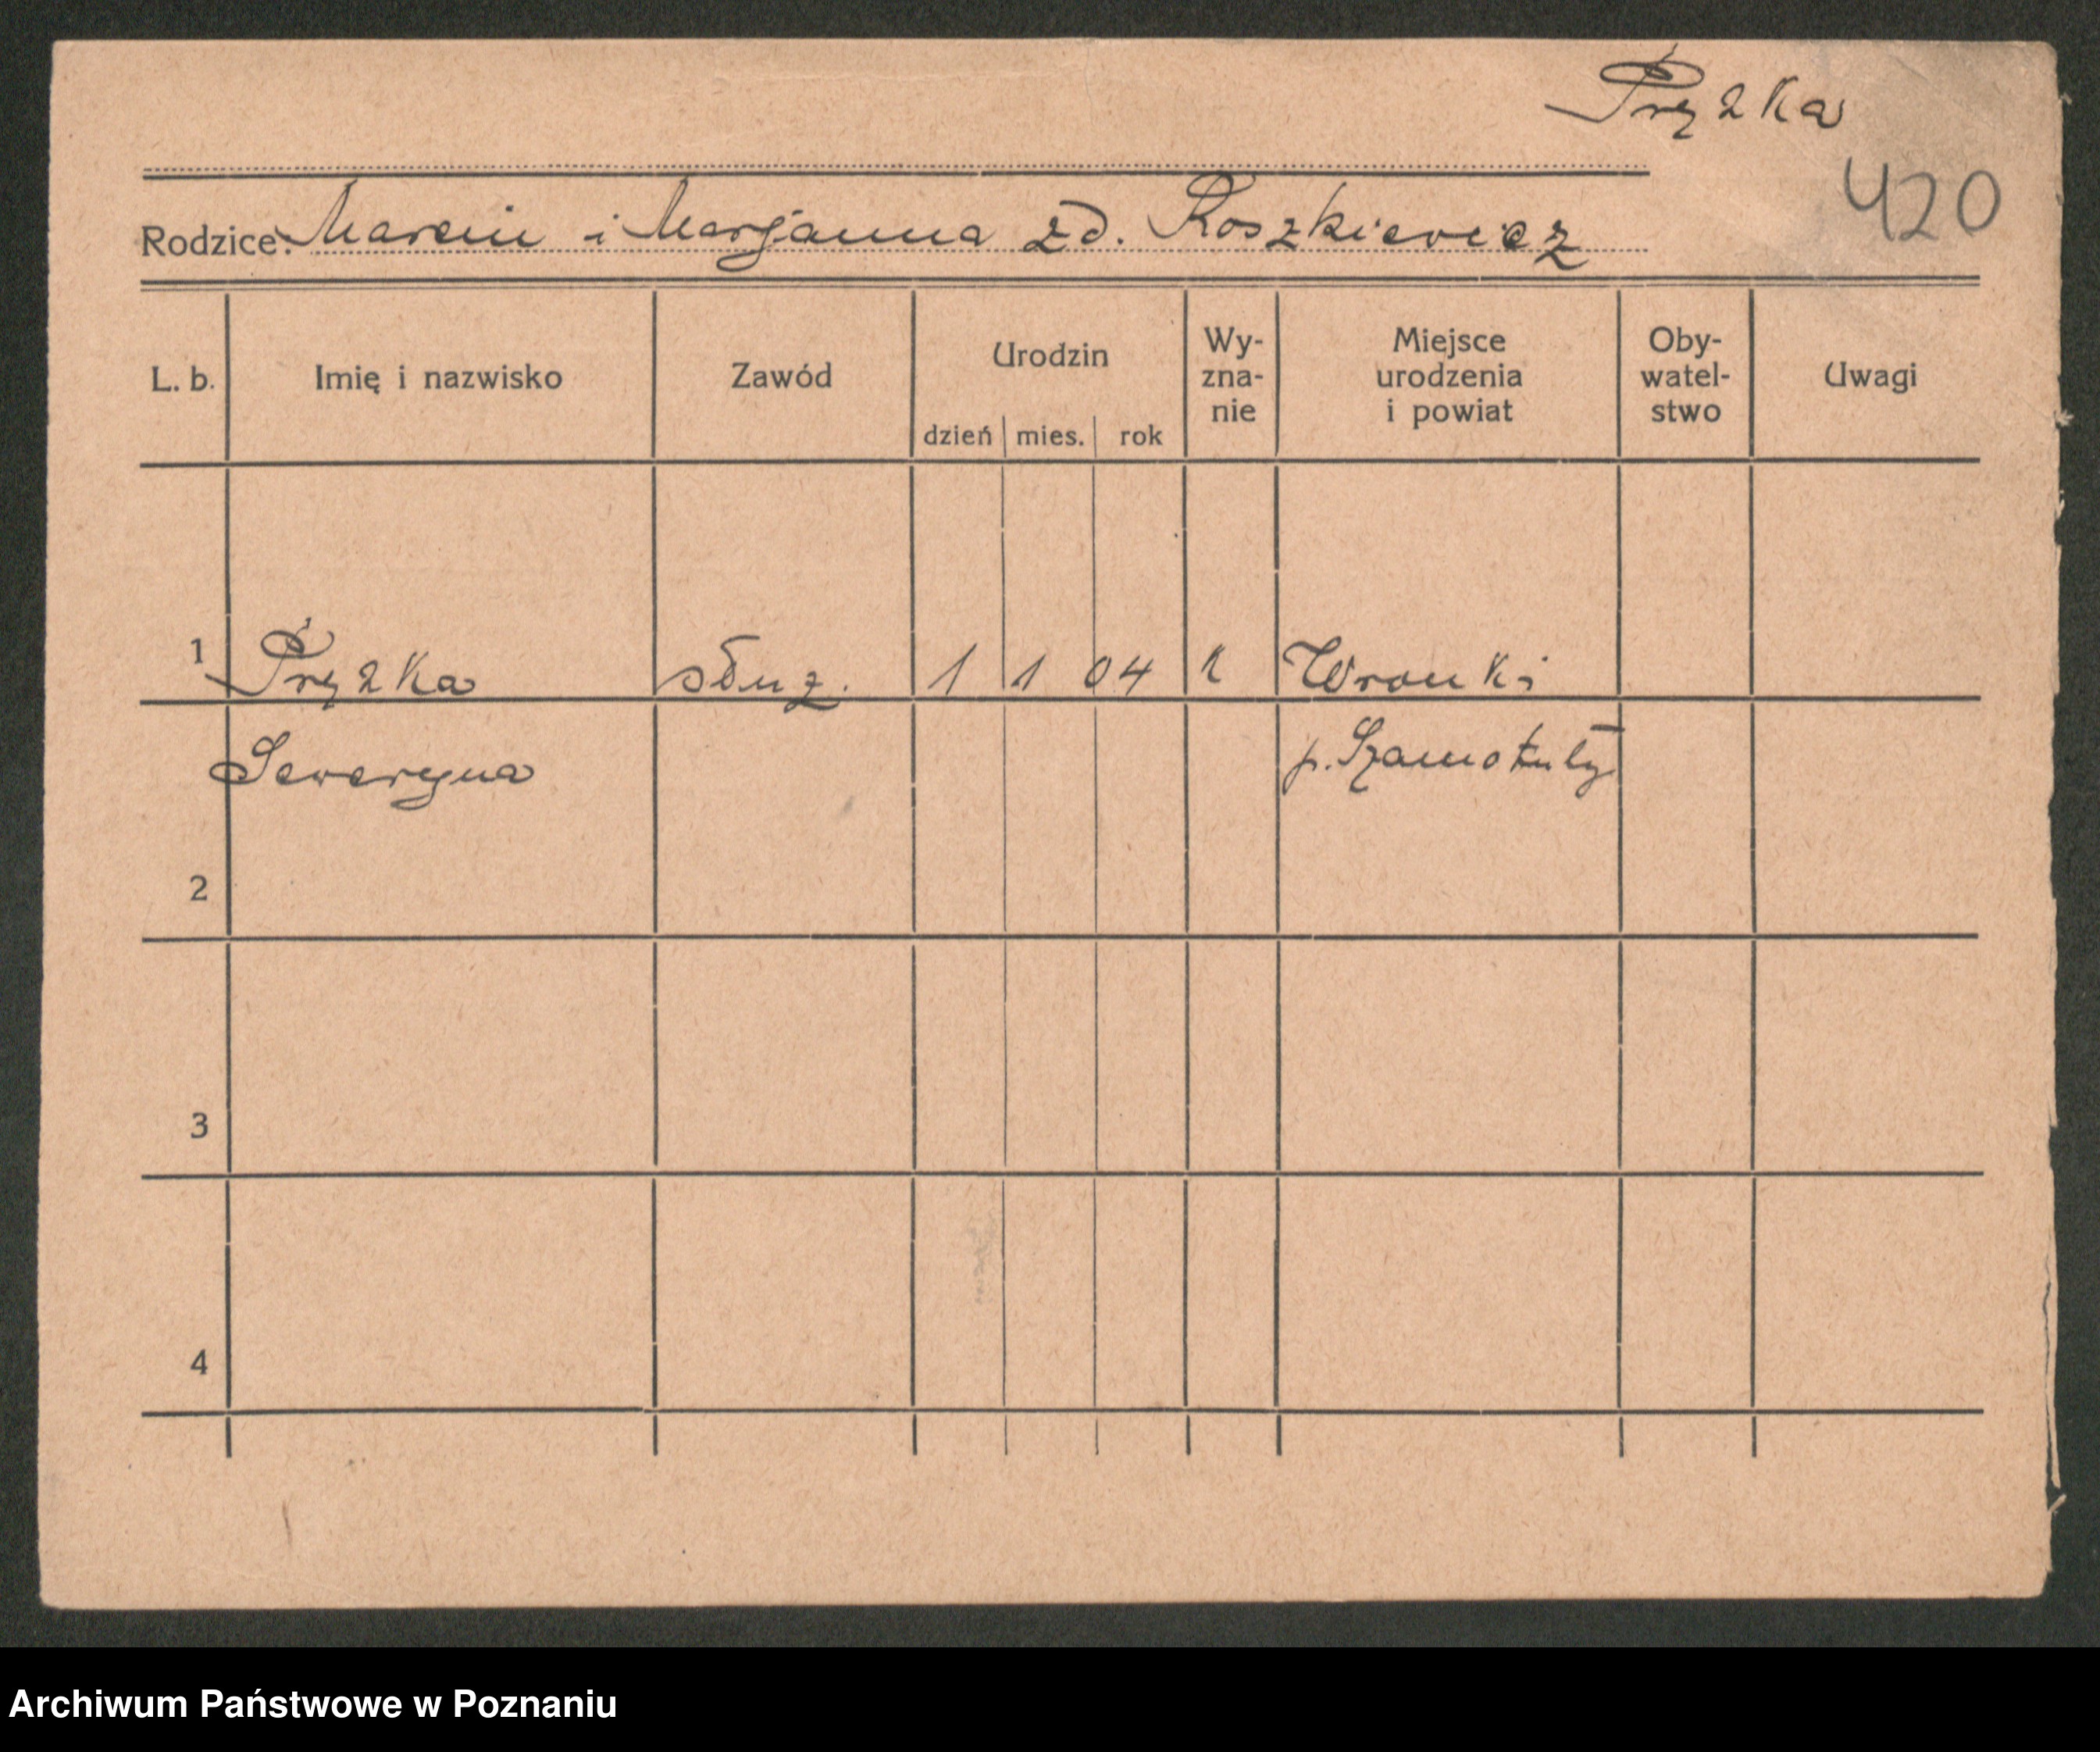 Pryzka
420
Rodzice: Marcin i Marjanna zd. Roszkiewicz
L. b. Imię i nazwisko Zawód Urodzin dzień mies. rok Wy-zna-nie Miejsce urodzenia i powiat Oby-watel-stwo Uwagi
1 Pryzka służ. 1 1 04 k Wronki
Seweryna p. Szamotuły
2
3
4
Archiwum Państwowe w Poznaniu